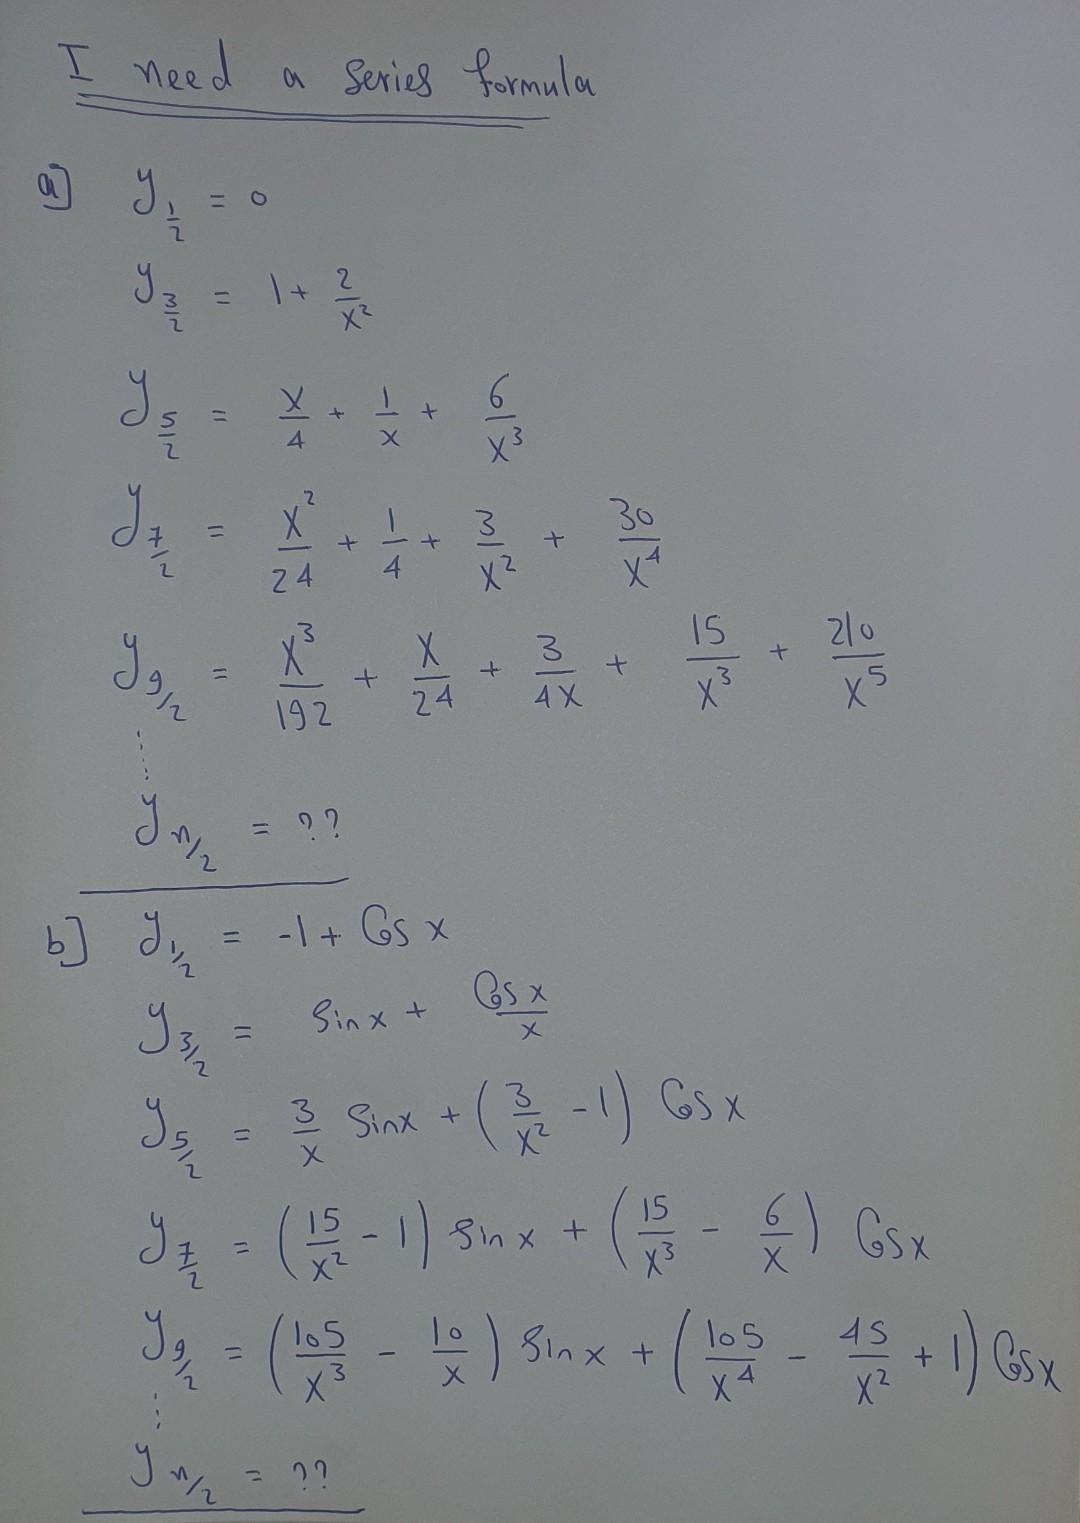 I need a series formula
a] y_{1/2} = 0
y_{3/2} = 1 + 2/x²
y_{5/2} = x/4 + 1/x + 6/x³
y_{7/2} = x²/24 + 1/4 + 3/x² + 30/x⁴
y_{9/2} = x³/192 + x/24 + 3/4x + 15/x³ + 210/x⁵
y_{n/2} = ??
b] y_{1/2} = -1 + Cos x
y_{3/2} = Sin x + Cos x/x
y_{5/2} = 3/x Sin x + (3/x² - 1) Cos x
y_{7/2} = (15/x² - 1) Sin x + (15/x³ - 6/x) Cos x
y_{9/2} = (105/x³ - 10/x) Sin x + (105/x⁴ - 45/x² + 1) Cos x
y_{n/2} = ??